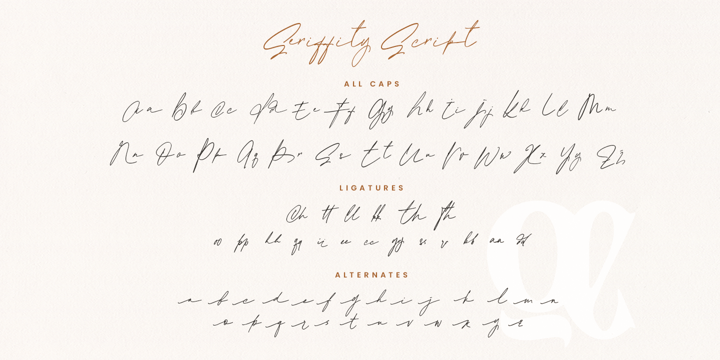 Seriffity Script
ALL CAPS
Aa Bb Cc Dd Ee Ff Gg Hh Ii Jj Kk Ll Mm
Nn Oo Pp Qq Rr Ss Tt Uu Vv Ww Xx Yy Zz
LIGATURES
Ch tt ll th
oo pp hh qq ee cc gg
ALTERNATES
a b c d e f g h i j k l m n
o p q r s t u v w x y z